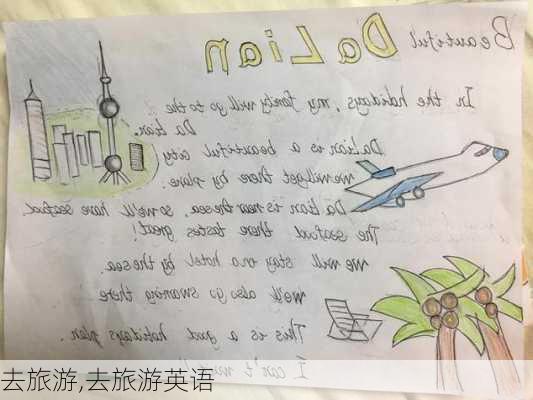 Beautiful DaLian
In the holidays, my family will go to the
Da Lian.
DaLian is a beautiful city
we will get there by plane.
Da Lian is near the sea. so we'll have seafood.
The seafood there tastes great!
we will stay in a hotel by the sea.
we'll also go swimming there
This is a good holidays plan.
I can't
去旅游,去旅游英语